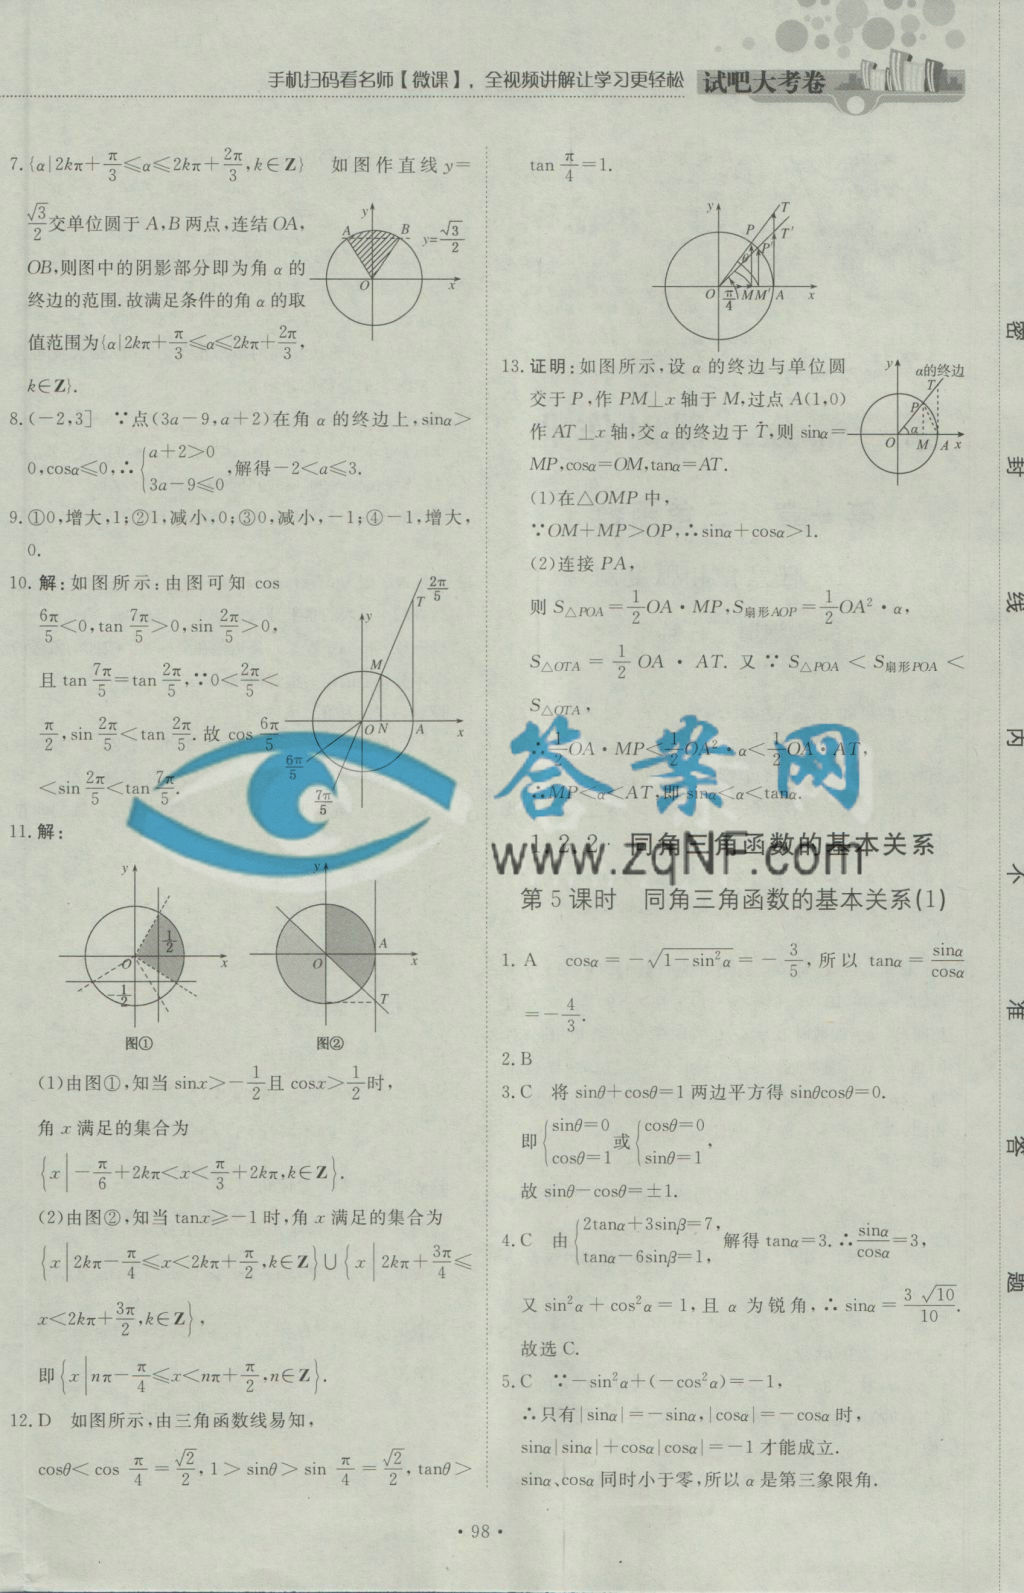 手机扫码看名师【微课】，全视频讲解让学习更轻松
试吧大考卷
7.{α|2kπ+π/3≤α≤2kπ+2π/3,k∈Z} 如图作直线y=
√3/2交单位圆于A,B两点,连结OA,
OB,则图中的阴影部分即为角α的
终边的范围.故满足条件的角α的取
值范围为{α|2kπ+π/3≤α≤2kπ+2π/3,
k∈Z}.
y A B y=√3/2 O x
8.(-2,3] ∵点(3a-9,a+2)在角α的终边上,sinα>
0,cosα≤0,∴{a+2>0
3a-9≤0,解得-2<a≤3.
9.①0,增大,1;②1,减小,0;③0,减小,-1;④-1,增大,
0.
10.解:如图所示:由图可知cos
6π/5<0,tan 7π/5>0,sin 2π/5>0,
且tan 7π/5=tan 2π/5,∵0<2π/5<
π/2,sin 2π/5<tan 2π/5.故cos 6π/5
<sin 2π/5<tan 7π/5.
2π/5 T y M O N A x 6π/5 7π/5
11.解:
y 1/2 O x -1/2
图①
y A O x T
图②
(1)由图①,知当sinx>-1/2且cosx>1/2时,
角x满足的集合为
{x|-π/6+2kπ<x<π/3+2kπ,k∈Z}.
(2)由图②,知当tanx≥-1时,角x满足的集合为
{x|2kπ-π/4≤x<2kπ+π/2,k∈Z}∪{x|2kπ+3π/4≤
x<2kπ+3π/2,k∈Z},
即{x|nπ-π/4≤x<nπ+π/2,n∈Z}.
12.D 如图所示,由三角函数线易知,
cosθ<cos π/4=√2/2,1>sinθ>sin π/4=√2/2,tanθ>
tan π/4=1.
y T P T' P' θ O π/4 M M' A x
13.证明:如图所示,设α的终边与单位圆
交于P,作PM⊥x轴于M,过点A(1,0)
作AT⊥x轴,交α的终边于T,则sinα=
MP,cosα=OM,tanα=AT.
y α的终边 T P α O M A x
(1)在△OMP中,
∵OM+MP>OP,∴sinα+cosα>1.
(2)连接PA,
则S△POA=1/2OA·MP,S扇形AOP=1/2OA²·α,
S△OTA=1/2OA·AT.又∵S△POA<S扇形POA<
S△OTA,
∴1/2OA·MP<1/2OA²·α<1/2OA·AT,
∴MP<α<AT,即sinα<α<tanα.
答案网
www.zqNF.com
1.2.2 同角三角函数的基本关系
第5课时 同角三角函数的基本关系(1)
1.A cosα=-√(1-sin²α)=-3/5,所以tanα=sinα/cosα
=-4/3.
2.B
3.C 将sinθ+cosθ=1两边平方得sinθcosθ=0.
即{sinθ=0
cosθ=1或{cosθ=0
sinθ=1,
故sinθ-cosθ=±1.
4.C 由{2tanα+3sinβ=7,
tanα-6sinβ=1,解得tanα=3.∴sinα/cosα=3,
又sin²α+cos²α=1,且α为锐角,∴sinα=3√10/10.
故选C.
5.C ∵-sin²α+(-cos²α)=-1,
∴只有|sinα|=-sinα,|cosα|=-cosα时,
sinα|sinα|+cosα|cosα|=-1才能成立.
sinα、cosα同时小于零,所以α是第三象限角.
·98·
密
封
线
内
不
准
答
题